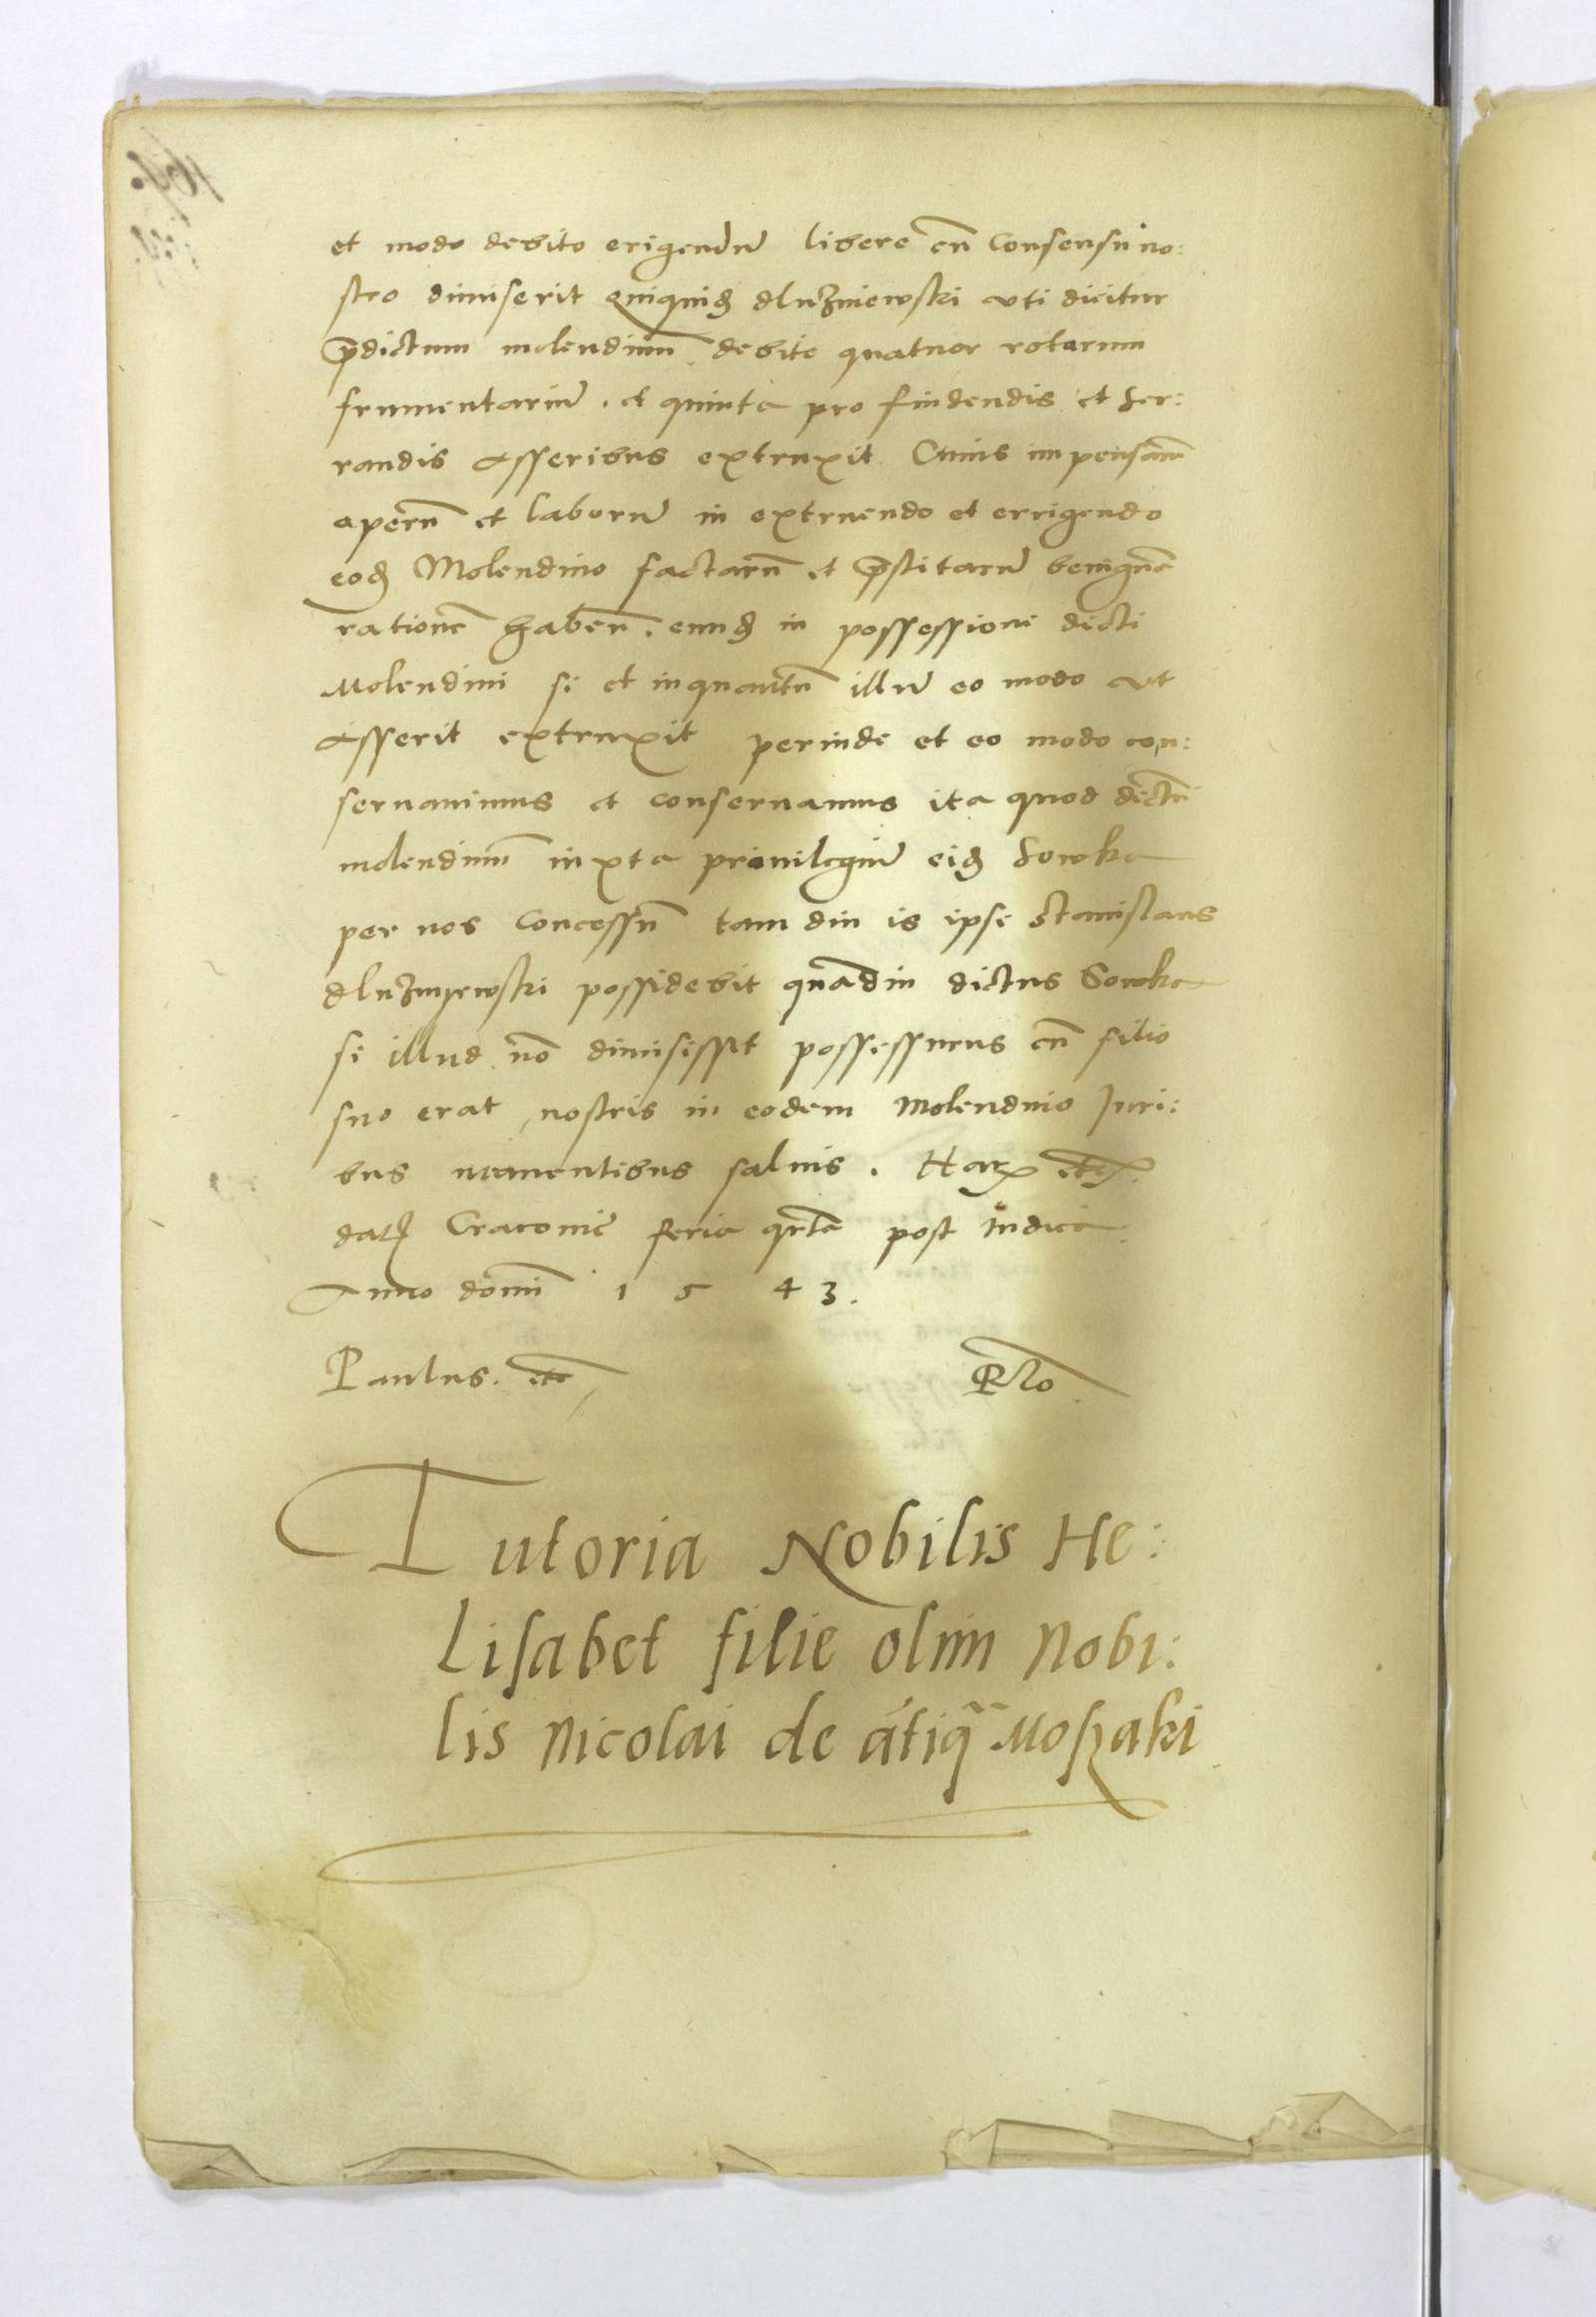 et modo debito erigendū libere cū Consensu no:
stro dimiserit quiquid⁊ dluzniewski vti dicitur
p̄dictum molendinū debite quatuor rotarum
frumentariū. et quinta pro findendis et ser:
randis asseribus extruxit Cuius impensarū
operū et laborū in extruendo et errigendo
eod⁊ Molendino factarū et p̄stitarū benignā
rationē haben̄. eund⁊ in possessione dicti
Molendini si et inquantū illud eo modo vt
asserit extruxit perinde et eo modo con:
seruauimus et conseruamus ita quod dictū
molendinū iuxta priuilegiū eid⁊ Sowka
per nos Concessū tam diu is ipse Stanislaus
dluznyewski possidebit quādiu dictus Sowka
si illud nō dimisisset possessurus cū filio
suo erat, nostris in eodem Molendino Iuri:
bus manentibus saluis. Harꝝ etc.
dat⁊ Cracouie feria qrta post Iudica
Anno domī 1543.
Paulus. etc
Rlo
Tutoria Nobilis He:
lisabet filie olim Nobi:
lis Nicolai de ātiq̄ Moszaki